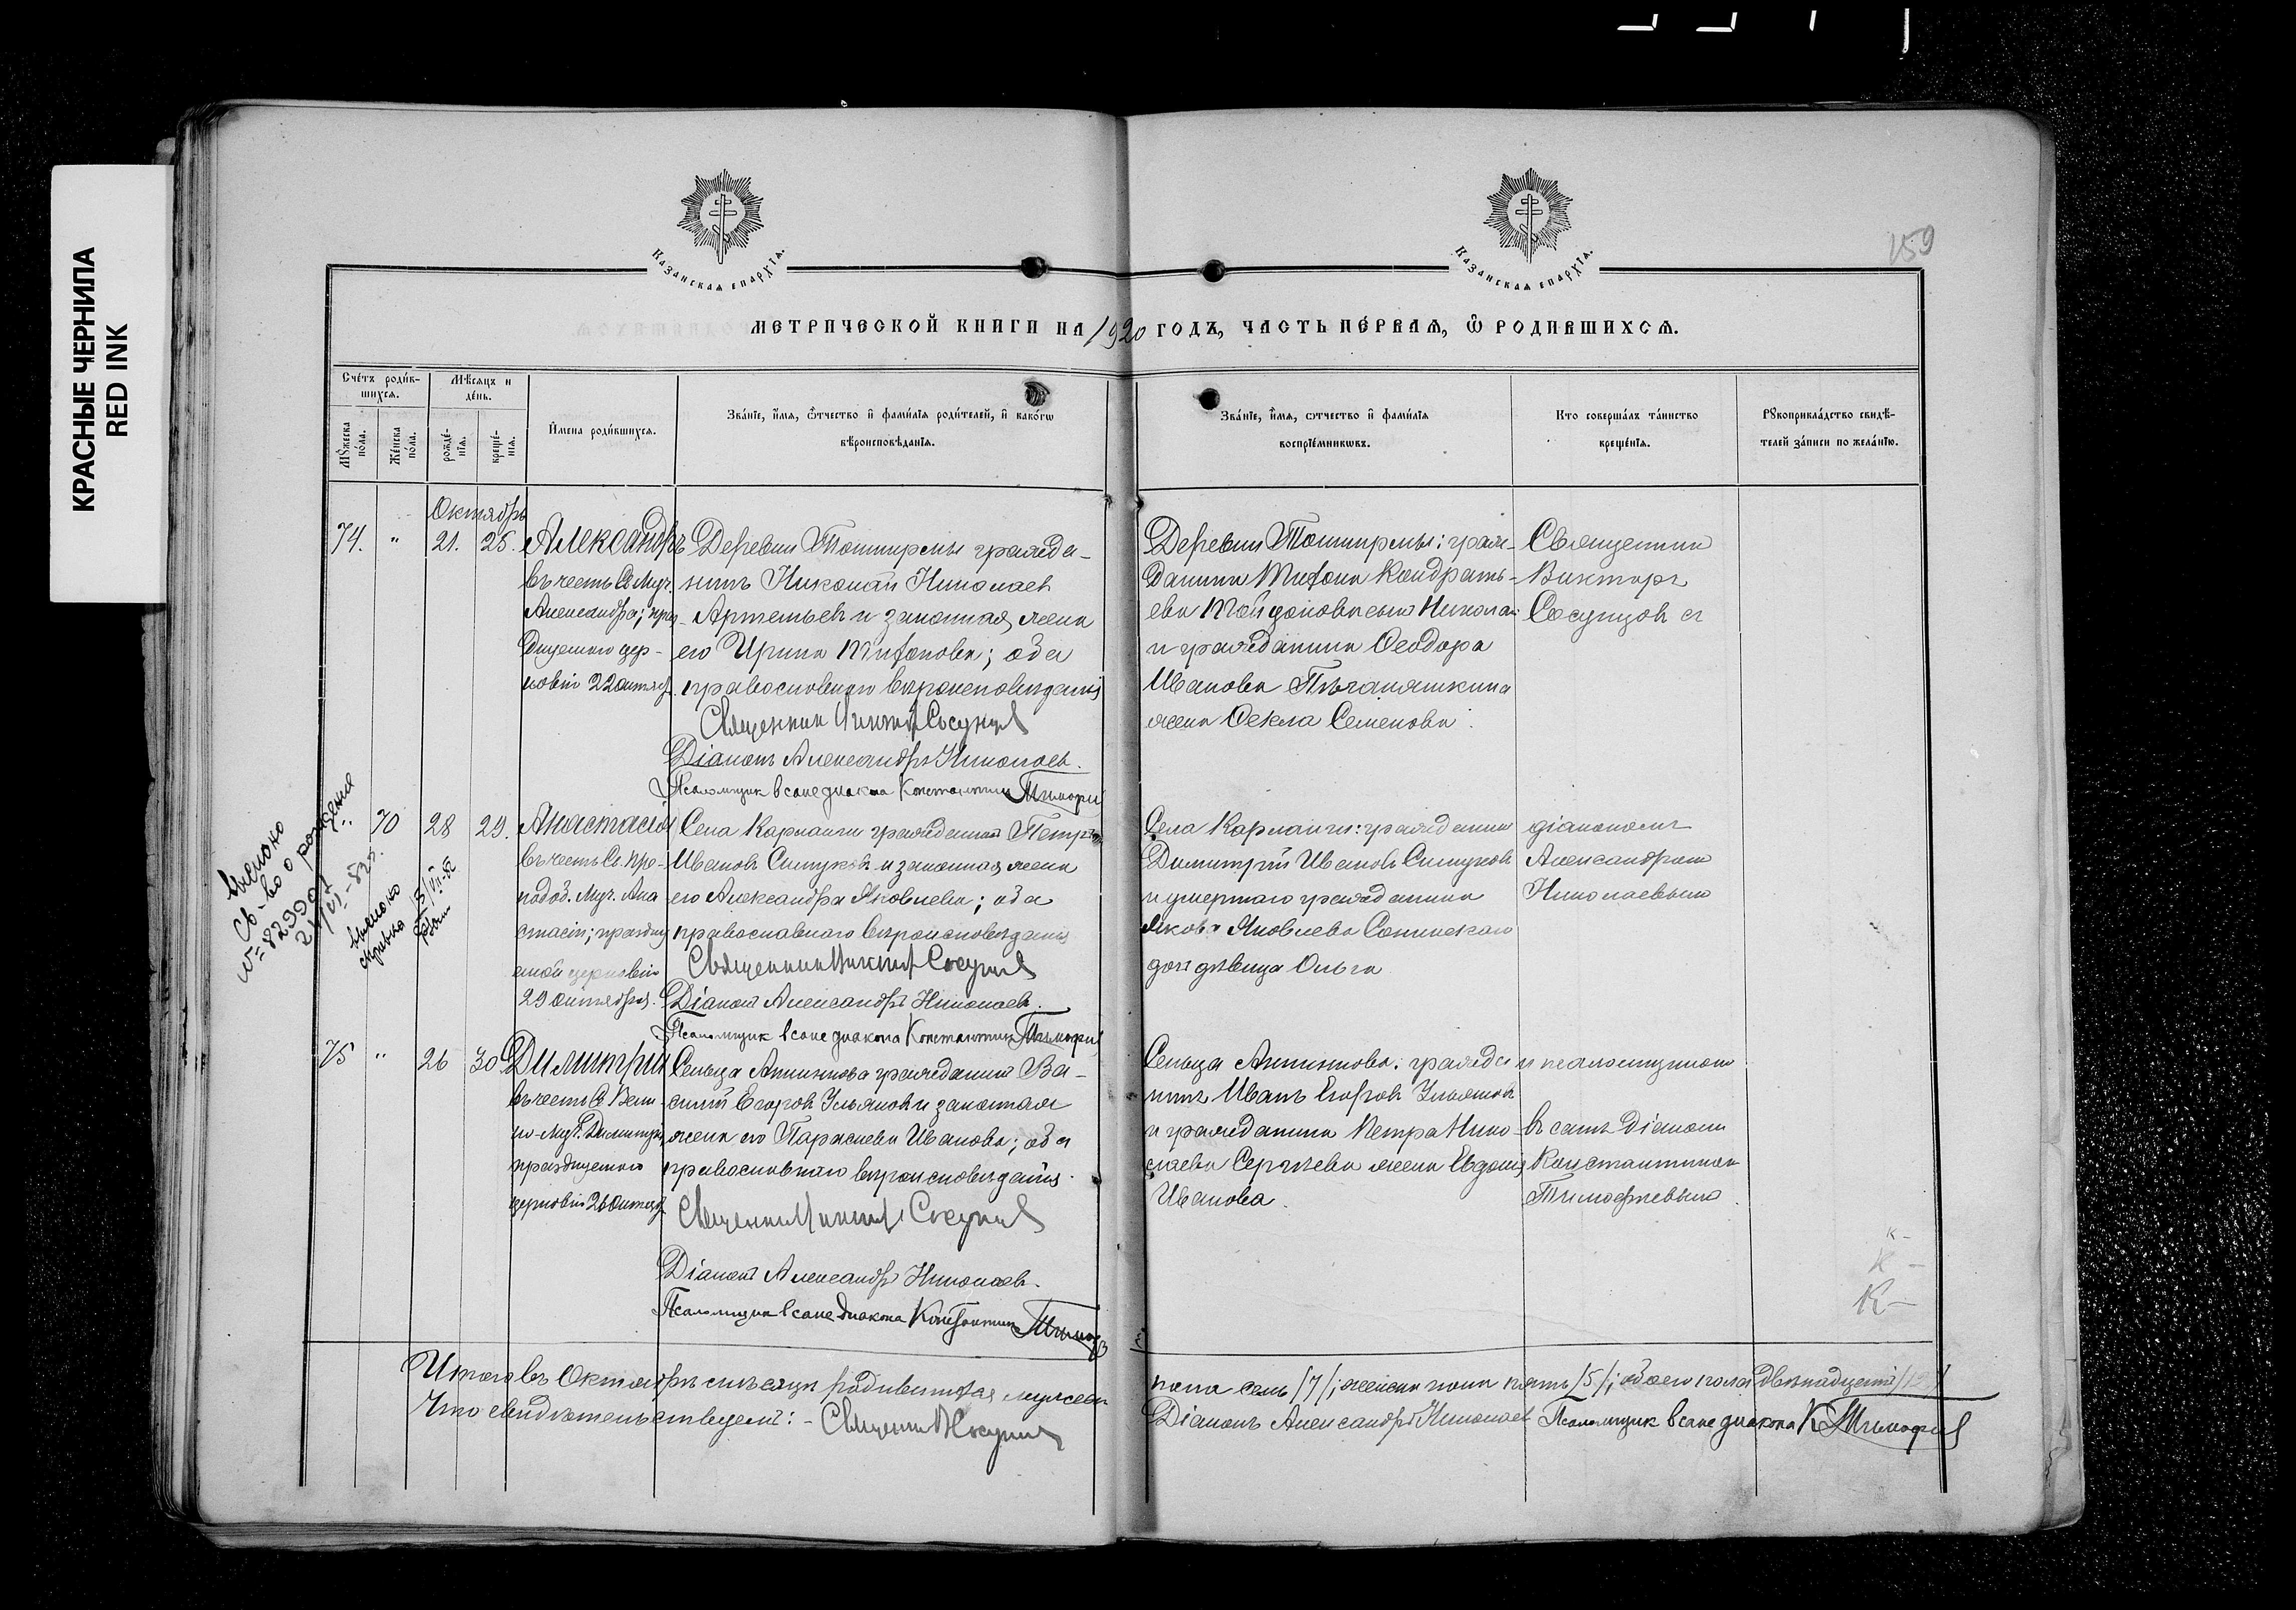 КРАСНЫЕ ЧЕРНИЛА
RED INK
Казанская епархїя.
Казанская епархїя.
159
МЕТРИЧЕСКОЙ КНИГИ НА 1920 ГОДЪ, ЧАСТЬ ПЕ́РВАЯ, Ѽ РОДИВШИХСЯ.
Сче́тъ роди́в-
шихся.
Мѣсяцъ и
де́нь.
Мꙋ́жеска
по́ла.
Же́нска
по́ла.
рожде́-
нїя.
креще́-
нїя.
И҆мена роди́вшихся.
Зва́нїе, и҆́мя, ѻ҆́тчество и҆ фами́лїя роди́телей, и҆ како́гѡ
вѣроисповѣ́данїя.
Зва́нїе, и҆́мя, ѻтчество и҆ фами́лїя
воспрїе́мникѡвъ.
Кто соверша́лъ та́инство
креще́нїя.
Рꙋкоприкла́дство свидѣ́-
телей за́писи по жела́нїю.
Октябрь
74. " 21. 25. Александръ
въ честь Св. Муч.
Александра; праз-
днуемаго цер-
ковію 22 октяб.
Деревни Тоширмы гражда-
нинъ Николай Николаев
Артемьев и законная жена
его Ирина Трифонова; оба
православнаго вѣроисповѣданія
Священник Виктор Сосунцов
Діаконъ Александръ Николаев.
Псаломщик в сане диакона Константин Тимофеев
Деревни Тошмирмы: граж-
данина Трифона Кондрать-
ева сын Николай
и гражданина Ѳеодора
Иванова
жена Ѳекла Семенова.
Священник
Викторъ
Сосунцов съ
" 70 28 29. Анастасія
въ честь Св. Пре-
подоб. Муч. Ана
стасіи; праздну
емой церковію
29 октября.
Села Карланги гражданин Петръ
Иванов и законная жена
его Александра Яковлева; оба
православнаго вѣроисповѣданія
Священник Виктор Сосунцов
Діаконъ Александръ Николаев.
Псаломщик в сане диакона Константин Тимофеев
Села Карланги: гражданин
Димитрій Иванов
и умершаго гражданина
Якова Яковлева
дочь дѣвица Ольга
діакономъ
Александром
Николаевым
выслано
св-во о рождении
выслано
75 " 26 30 Димитрій
въ честь Св. Вели-
ко-Муч. Димитрія
празднуемаго
церковію 26 октяб.
Сельца Аншикова гражданин Ва-
силій Егоров Ульянов и законная
жена его Параскева Иванова; оба
православнаго вѣроисповѣданія.
Священник Виктор Сосунцов
Діаконъ Александръ Николаев.
Псаломщик в сане диакона Константин Тимофеев
Сельца Аншикова: гражда-
нинъ Иванъ Егоров Ульянов
и гражданина Петра Нико-
лаева Сергѣева жена Евдокія
Иванова.
и псаломщиком
въ санѣ діакона
Константином
Тимофеевым.
К -
К -
К -
Итого въ Октябрѣ мѣсяцѣ родившихся мужеска
пола семь /7/; женска пола пять /5/; обоего пола двѣнадцать /12/
Что свидѣтельствуемъ: - Священник В Сосунцов
Діаконъ Александръ Николаев Псаломщик в сане диакона К Тимофеев